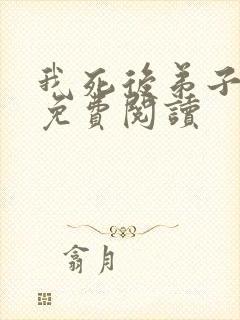 我死後弟子
免費閱讀
翕月